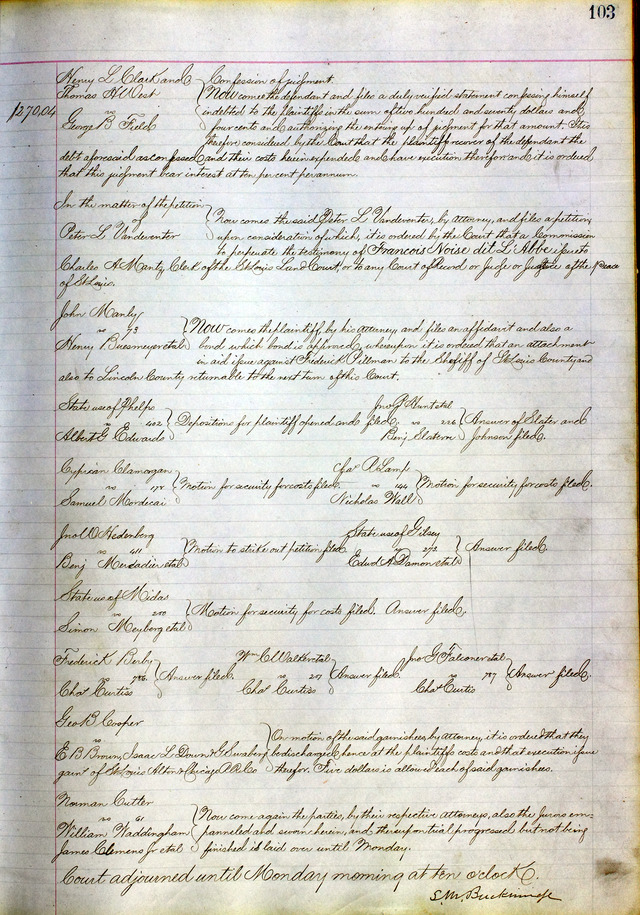 103
Henry L Clark and
Thomas H West
vs
George B Field
$270,04
Confession of judgment.
Now comes the defendant and files a duly verified statement confessing himself
indebted to the plaintiffs in the sum of two hundred and seventy dollars and
four cents and authorizing the entering up of judgment for that amount. It is
therefore considered by the Court that the plaintiffs recover of the defendant the
debt aforesaid as confessed and their costs herein expended and have execution therefor and it is ordered
that this judgment bear interest at ten per cent per annum.
In the matter of the petition
of
Peter L Vandeventer
Now comes the said Peter L Vandeventer, by attorney, and files a petition,
upon consideration of which, it is ordered by the Court that a Commission
to perpetuate the testimony of Francois Noise dit L'Abbe issue to
Charles A Mantz Clerk of the St Louis Land Court, or to any Court of Record or Judge or Justice of the peace
of St Louis.
John Manly
vs 73
Henry Buesmeyer et al
Now comes the plaintiff by his attorney and files an affidavit and also a
bond which bond is approved, whereupon it is ordered that an attachment
in aid issue against Frederick Pillman to the Sheriff of St Louis County and
also to Lincoln County returnable to the next term of this Court.
State use of Phelps
vs 402
Albert G Edwards
Depositions for plaintiff opened and filed.
Jno P Hunt et al
vs 226
Benj Slater
Answer of Slater and
Johnson filed.
Cyprian Clamorgan
vs 177
Samuel Mordecai
Motion for security for costs filed.
Chas P Lamp
vs 144
Nicholas Wall
Motion for security for costs filed.
Jno O Hedenberg
vs 411
Benj Mercadier et al
Motion to strike out petition filed.
State use of Gilsey
vs 272
Edwd A Damon et al
Answer filed.
State use of Midas
vs 210
Simon Meyberg et al
Motion for security for costs filed. Answer filed.
Frederick Berby
786
Chas Curtiss
Answer filed.
Wm C Walker et al
vs
Chas Curtiss
Answer filed.
Jno G Falconer et al
vs 787
Chas Curtis
Answer filed.
Geo B Cooper
vs
E B Brown, Isaac L Down & G Swabery
garnt of St Louis Alton & Chicago R R Co
On motion of the said garnishees, by attorney, it is ordered that they
be discharged hence at the plaintiffs costs and that execution issue
therefor. Five dollars is allowed each of said garnishees.
Norman Cutler
vs 61
William Waddingham
James Clemens Jr et al
Now come again the parties, by their respective attorneys, also the Jurors em-
panneled and sworn herein, and thereupon trial progressed but not being
finished is laid over until Monday.
Court adjourned until Monday morning at ten o'clock.